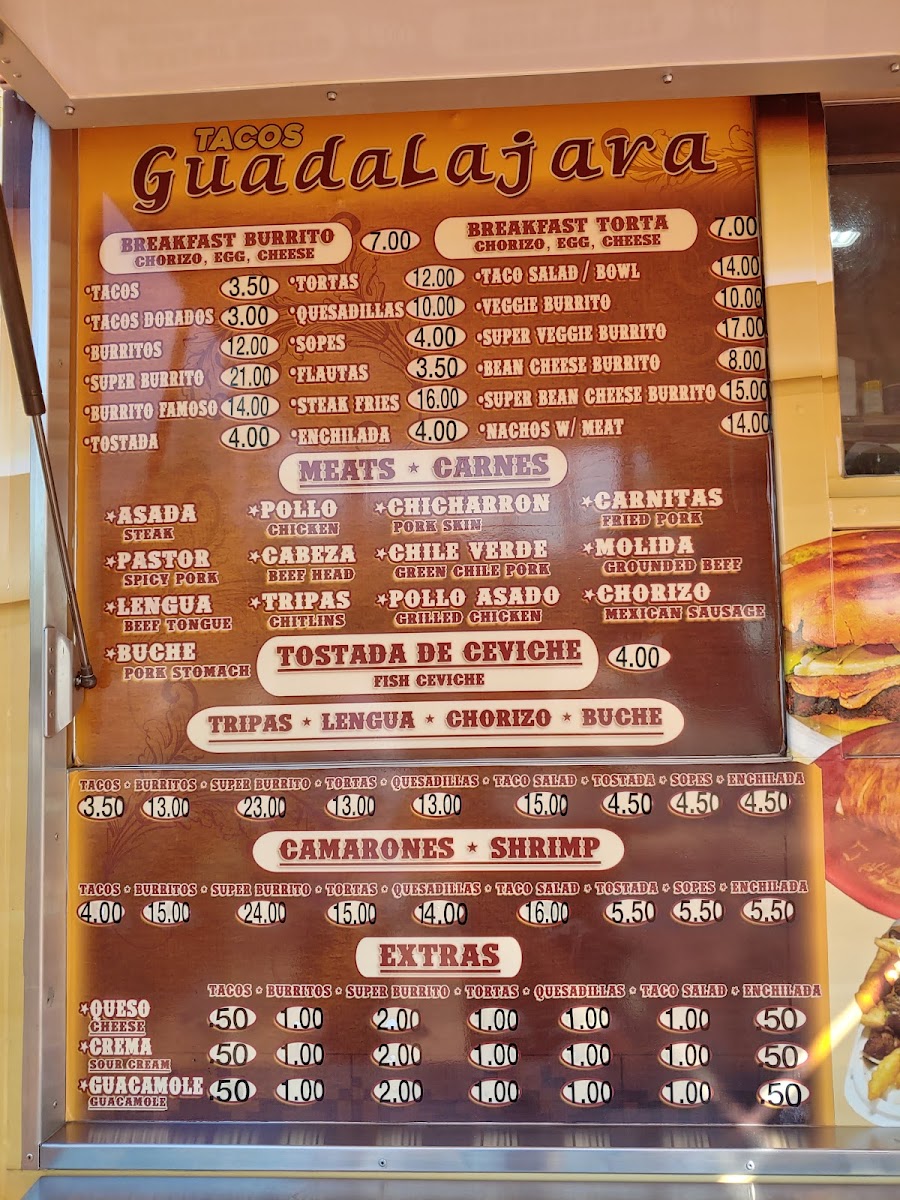 TACOS
GuadaLajara
BREAKFAST BURRITO 7.00
CHORIZO, EGG, CHEESE
BREAKFAST TORTA 7.00
CHORIZO, EGG, CHEESE
*TACOS 3.50
*TACOS DORADOS 3.00
*BURRITOS 12.00
*SUPER BURRITO 21.00
*BURRITO FAMOSO 14.00
*TOSTADA 4.00
*TORTAS 12.00
*QUESADILLAS 10.00
*SOPES 4.00
*FLAUTAS 3.50
*STEAK FRIES 16.00
*ENCHILADA 4.00
*TACO SALAD / BOWL 14.00
*VEGGIE BURRITO 10.00
*SUPER VEGGIE BURRITO 17.00
*BEAN CHEESE BURRITO 8.00
*SUPER BEAN CHEESE BURRITO 15.00
*NACHOS W/ MEAT 14.00
MEATS * CARNES
*ASADA
STEAK
*PASTOR
SPICY PORK
*LENGUA
BEEF TONGUE
*BUCHE
PORK STOMACH
*POLLO
CHICKEN
*CABEZA
BEEF HEAD
*TRIPAS
CHITLINS
*CHICHARRON
PORK SKIN
*CHILE VERDE
GREEN CHILE PORK
*POLLO ASADO
GRILLED CHICKEN
*CARNITAS
FRIED PORK
*MOLIDA
GROUNDED BEFF
*CHORIZO
MEXICAN SAUSAGE
TOSTADA DE CEVICHE 4.00
FISH CEVICHE
TRIPAS * LENGUA * CHORIZO * BUCHE
TACOS * BURRITOS * SUPER BURRITO * TORTAS * QUESADILLAS * TACO SALAD * TOSTADA * SOPES * ENCHILADA
3.50 13.00 23.00 13.00 13.00 15.00 4.50 4.50 4.50
CAMARONES * SHRIMP
TACOS * BURRITOS * SUPER BURRITO * TORTAS * QUESADILLAS * TACO SALAD * TOSTADA * SOPES * ENCHILADA
4.00 15.00 24.00 15.00 14.00 16.00 5.50 5.50 5.50
EXTRAS
TACOS * BURRITOS * SUPER BURRITO * TORTAS * QUESADILLAS * TACO SALAD * ENCHILADA
*QUESO .50 1.00 2.00 1.00 1.00 1.00 .50
CHEESE
*CREMA .50 1.00 2.00 1.00 1.00 1.00 .50
SOUR CREAM
*GUACAMOLE .50 1.00 2.00 1.00 1.00 1.00 .50
GUACAMOLE